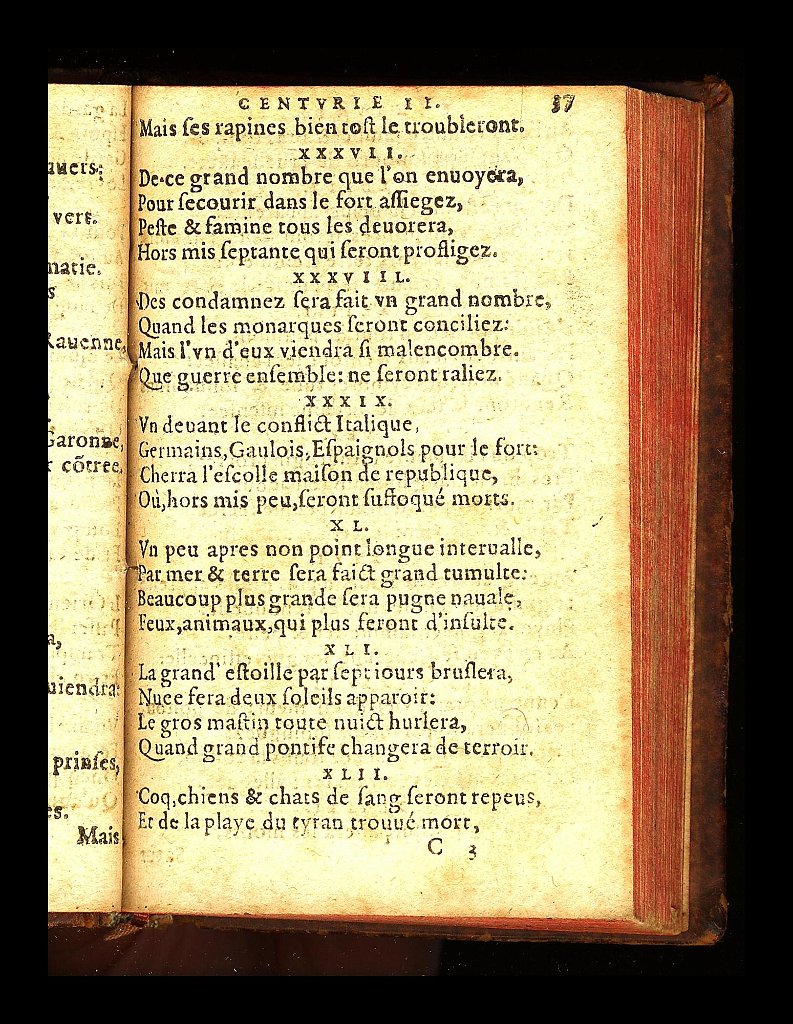 auers:
vers.
matie.
s
Rauenne,
Garonne,
r cõtree.
a,
uiendra:
prinſes,
es.
Mais
CENTVRIE II. 37
Mais ſes rapines bien toſt le troubleront.
XXXVII.
De ce grand nombre que l'on enuoyera,
Pour ſecourir dans le fort aſſiegez,
Peſte & famine tous les deuorera,
Hors mis ſeptante qui ſeront profligez.
XXXVIII.
Des condamnez ſera fait vn grand nombre,
Quand les monarques ſeront conciliez:
Mais l'vn d'eux viendra ſi malencombre.
Que guerre enſemble: ne ſeront raliez.
XXXIX.
Vn deuant le conflict Italique,
Germains, Gaulois, Eſpaignols pour le fort:
Cherra l'eſcolle maiſon de republique,
Où, hors mis peu, ſeront ſuffoqué morts.
XL.
Vn peu apres non point longue interualle,
Par mer & terre ſera faict grand tumulte:
Beaucoup plus grande ſera pugne nauale,
Feux, animaux, qui plus feront d'inſulte.
XLI.
La grand' eſtoille par ſept iours bruſlera,
Nuee fera deux ſoleils apparoir:
Le gros maſtin toute nuict hurlera,
Quand grand pontife changera de terroir.
XLII.
Coq, chiens & chats de ſang ſeront repeus,
Et de la playe du tyran trouué mort,
C 3